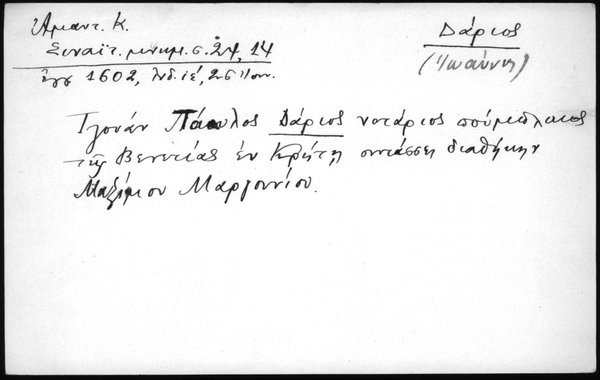 Ἀμαντ. Κ.
Σιναϊτ. μνημ. σ. 24, 14
ἔτει 1602, Ἰνδ. ιέ, 25 Ἰουν.
Δάριος
(Ἰωάννης)
Τζουάν Πάουλος Δάριος νοτάριος πούμπλικος
τῆς Βενετίας ἐν Κρήτῃ συντάσσει διαθήκην
Μαξίμου Μαργουνίου.